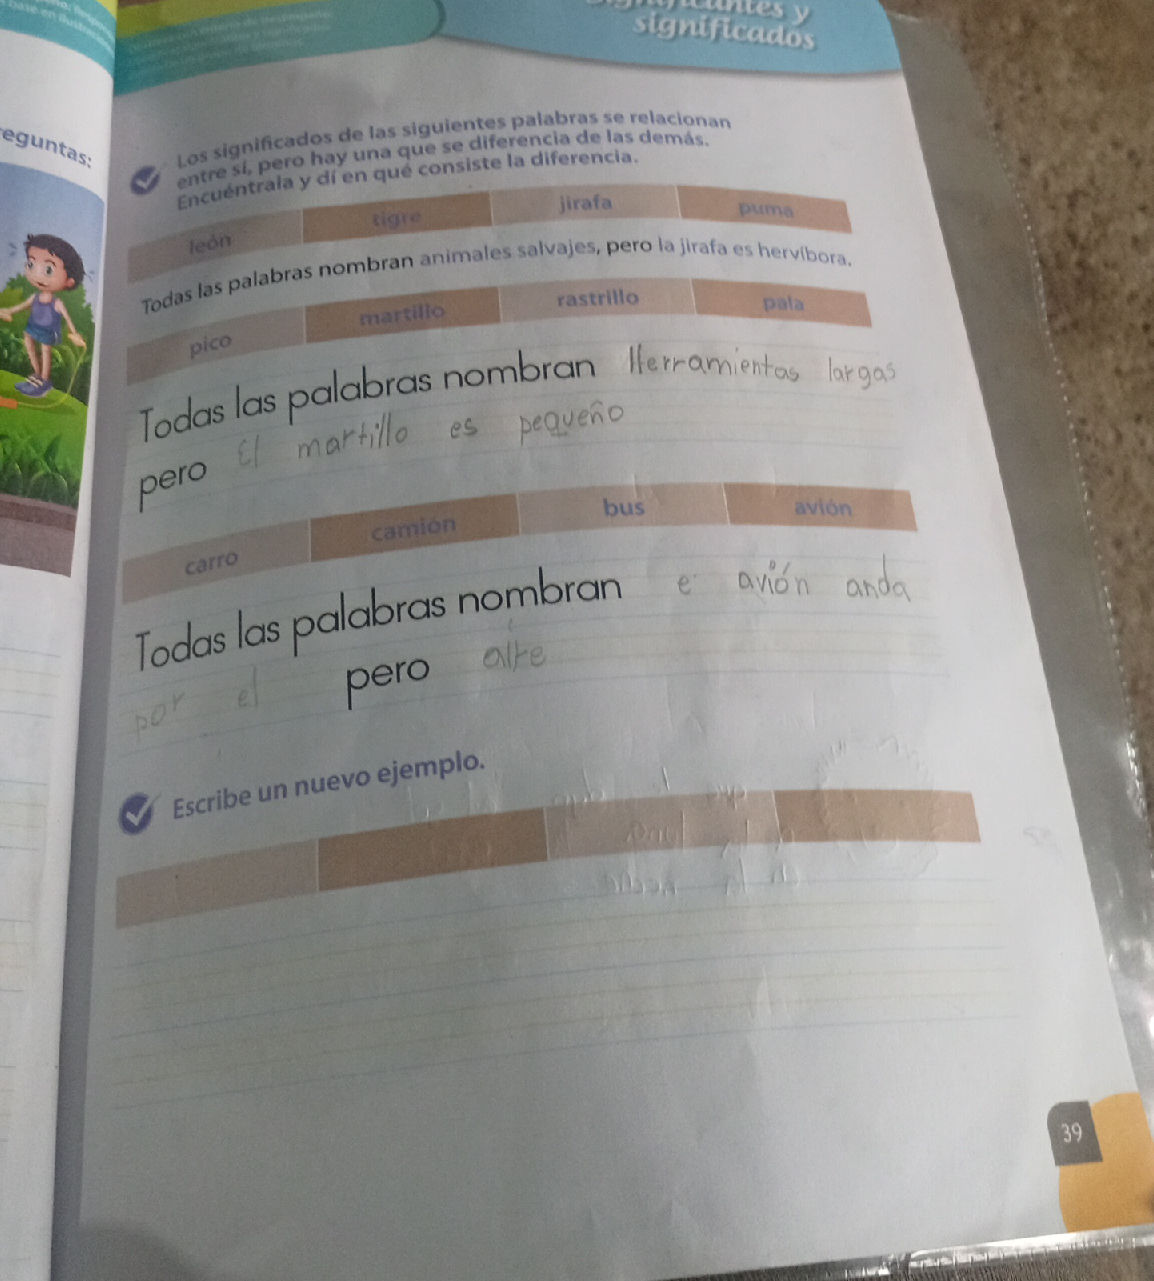 significados
eguntas:
Los significados de las siguientes palabras se relacionan
entre sí, pero hay una que se diferencia de las demás.
Encuéntrala y di en qué consiste la diferencia.
león tigre jirafa puma
Todas las palabras nombran animales salvajes, pero la jirafa es hervíbora.
pico martillo rastrillo pala
Todas las palabras nombran Herramientas largas
pero El martillo es pequeño
carro camión bus avión
Todas las palabras nombran e avión anda
por el pero aire
Escribe un nuevo ejemplo.
39